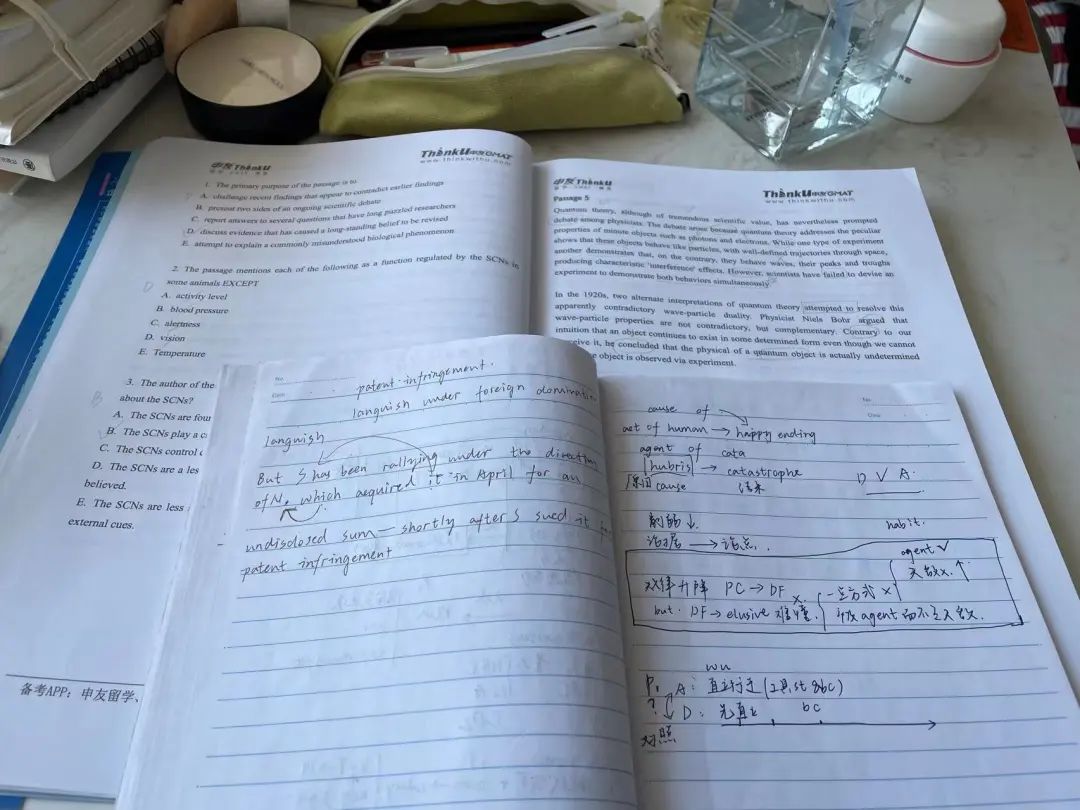 申友ThinkU
ThinkU申友GMAT
www.thinkwithu.com
1. The primary purpose of the passage is to
A. challenge recent findings that appear to contradict earlier findings
B. present two sides of an ongoing scientific debate
C. report answers to several questions that have long puzzled researchers
D. discuss evidence that has caused a long-standing belief to be revised
E. attempt to explain a commonly misunderstood biological phenomenon
2. The passage mentions each of the following as a function regulated by the SCNs in
some animals EXCEPT
A. activity level
B. blood pressure
C. alertness
D. vision
E. Temperature
3. The author of the
about the SCNs?
A. The SCNs are four
B. The SCNs play a c
C. The SCNs control
D. The SCNs are a les
believed.
E. The SCNs are less
external cues.
备考APP：申友留学、
申友ThinkU
ThinkU申友GMAT
www.thinkwithu.com
Passage 5
Quantum theory, although of tremendous scientific value, has nevertheless prompted
debate among physicists. The debate arose because quantum theory addresses the peculiar
properties of minute objects such as photons and electrons. While one type of experiment
shows that these objects behave like particles, with well-defined trajectories through space,
another demonstrates that, on the contrary, they behave waves, their peaks and troughs
producing characteristic 'interference' effects. However, scientists have failed to devise an
experiment to demonstrate both behaviors simultaneously.
In the 1920s, two alternate interpretations of quantum theory attempted to resolve this
apparently contradictory wave-particle duality. Physicist Niels Bohr argued that
wave-particle properties are not contradictory, but complementary. Contrary to our
intuition that an object continues to exist in some determined form even though we cannot
ceive it, he concluded that the physical of a quantum object is actually undetermined
e object is observed via experiment.
No.
Date
patent infringement.
languish under foreign domination
languish
But S has been rallying under the direction
of N, which acquired it in April for an
undisclosed sum — shortly after S sued it
patent infringement
No.
Date
cause of
act of human → happy ending
agent of cata
hubris → catastrophe
原因 cause 结果
D V A
削弱 ↓
habit.
论据 → 论点.
agent ✓
双律升降 PC → DF
but. DF → elusive 难懂.
wu
P. A: 直立行走
? D: 先直立 bc
对照